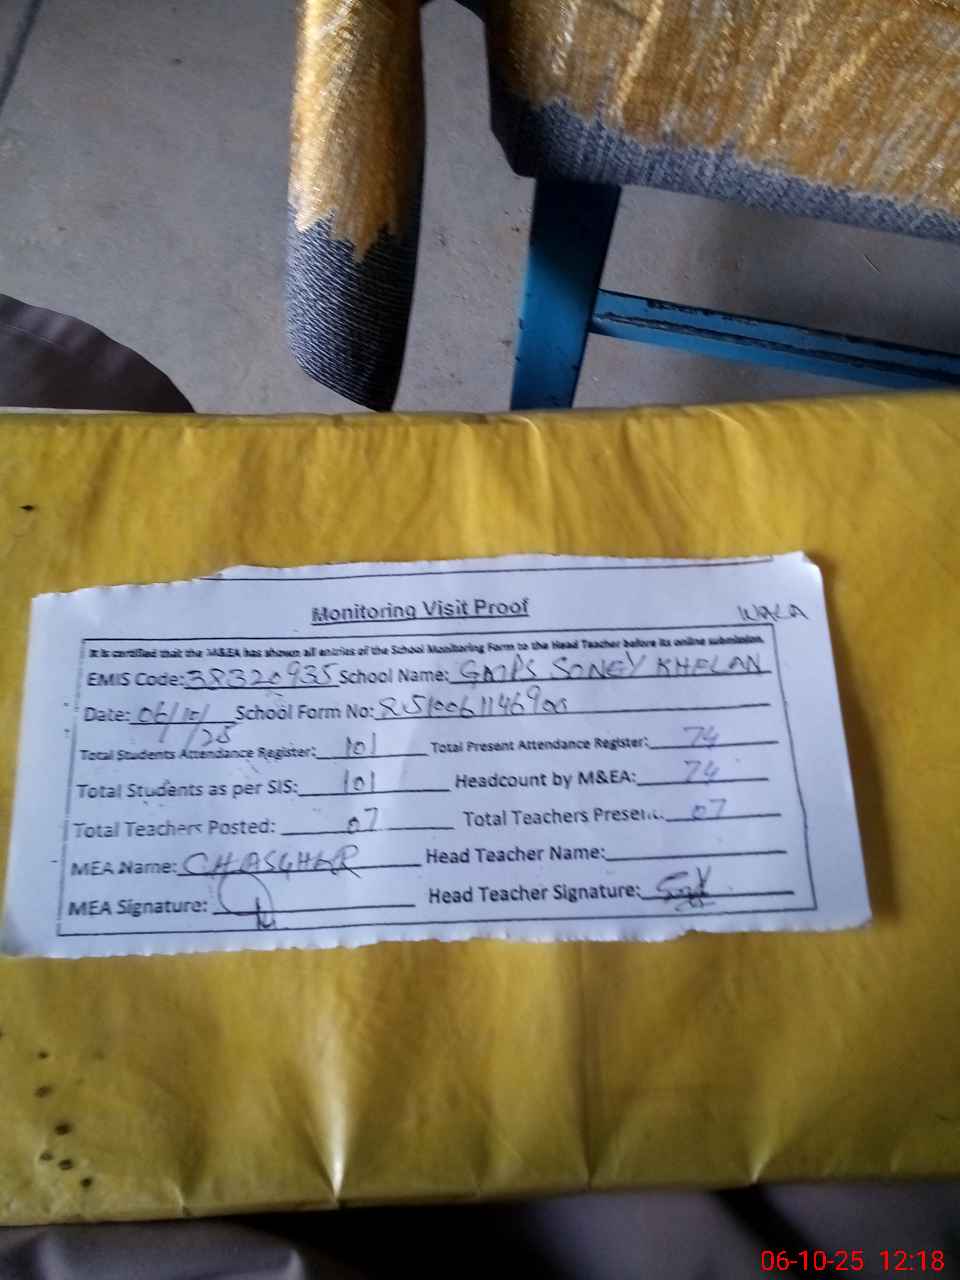 Monitoring Visit Proof
WALA
It is certified that the M&EA has shown all entries of the School Monitoring Form to the Head Teacher before its online submission.
EMIS Code: 38320935 School Name: GMPS SONEY KHELAN
Date: 06/10/25 School Form No:
Total Students Attendance Register: 101 Total Present Attendance Register: 74
Total Students as per SIS: 101 Headcount by M&EA: 74
Total Teachers Posted: 07 Total Teachers Present: 07
MEA Name: CH ASGHER Head Teacher Name:
MEA Signature: Head Teacher Signature:
06-10-25 12:18